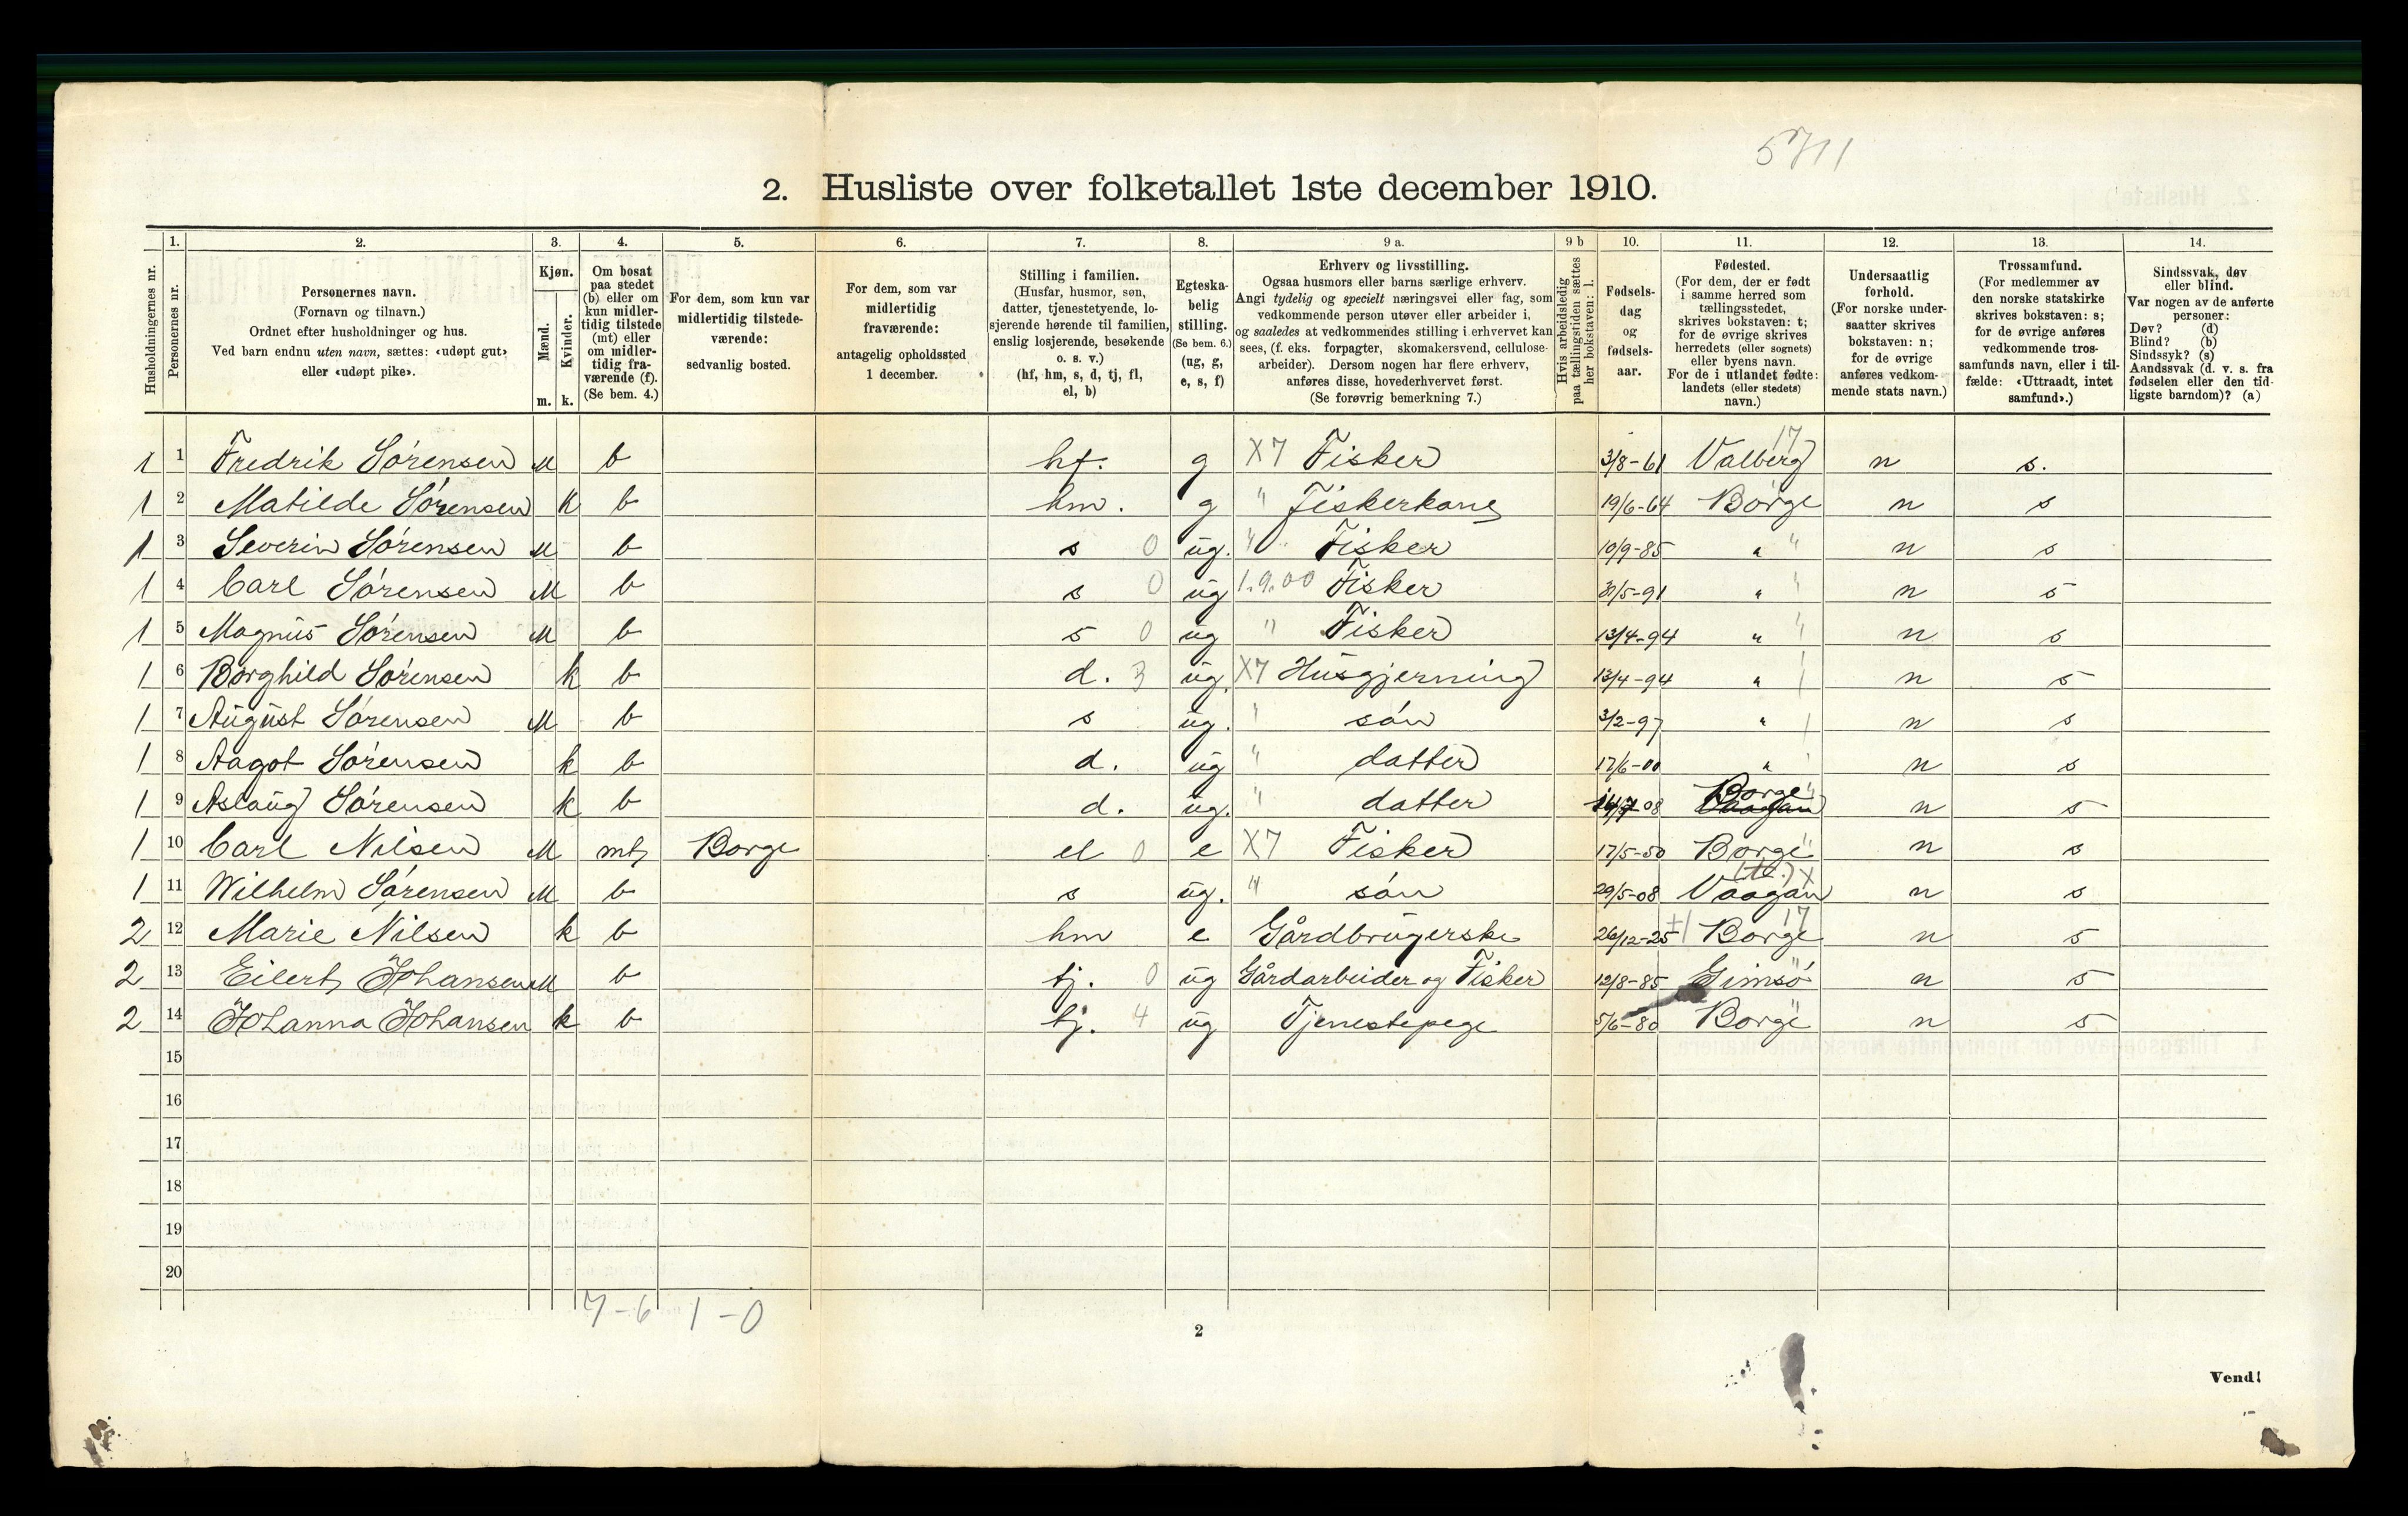 5711
2. Husliste over folketallet 1ste december 1910.
Husholdningernes nr.
1. Personernes nr.
2. Personernes navn. (Fornavn og tilnavn.) Ordnet efter husholdninger og hus. Ved barn endnu uten navn, sættes: «udøpt gut» eller «udøpt pike».
3. Kjøn. Mænd. m. Kvinder. k.
4. Om bosat paa stedet (b) eller om kun midlertidig tilstede (mt) eller om midlertidig fraværende (f). (Se bem. 4.)
5. For dem, som kun var midlertidig tilstedeværende: sedvanlig bosted.
6. For dem, som var midlertidig fraværende: antagelig opholdssted 1 december.
7. Stilling i familien. (Husfar, husmor, søn, datter, tjenestetyende, losjerende hørende til familien, enslig losjerende, besøkende o. s. v.) (hf, hm, s, d, tj, fl, el, b)
8. Egteskabelig stilling. (Se bem. 6.) (ug, g, e, s, f)
9 a. Erhverv og livsstilling. Ogsaa husmors eller barns særlige erhverv. Angi tydelig og specielt næringsvei eller fag, som vedkommende person utøver eller arbeider i, og saaledes at vedkommendes stilling i erhvervet kan sees, (f. eks. forpagter, skomakersvend, cellulosearbeider). Dersom nogen har flere erhverv, anføres disse, hovederhvervet først. (Se forøvrig bemerkning 7.)
9 b Hvis arbeidsledig paa tællingstiden sættes her bokstaven: l.
10. Fødselsdag og fødselsaar.
11. Fødested. (For dem, der er født i samme herred som tællingsstedet, skrives bokstaven: t; for de øvrige skrives herredets (eller sognets) eller byens navn. For de i utlandet fødte: landets (eller stedets) navn.)
12. Undersaatlig forhold. (For norske undersaatter skrives bokstaven: n; for de øvrige anføres vedkommende stats navn.)
13. Trossamfund. (For medlemmer av den norske statskirke skrives bokstaven: s; for de øvrige anføres vedkommende trossamfunds navn, eller i tilfælde: «Uttraadt, intet samfund».)
14. Sindssvak, døv eller blind. Var nogen av de anførte personer: Døv? (d) Blind? (b) Sindssyk? (s) Aandssvak (d. v. s. fra fødselen eller den tidligste barndom)? (a)
1 1 Fredrik Sørensen M b hf. g X7 Fisker 3/8-61 Valberg 17 n s.
1 2 Matilde Sørensen k b hm. g " Fiskerkone 19/6-64 Borge n s
1 3 Severin Sørensen M b s 0 ug. " Fisker 10/9-85 " " n s
1 4 Carl Sørensen M b s 0 ug 1.9.00 Fisker 30/5-91 " " n s
1 5 Magnus Sørensen M b s 0 ug " Fisker 13/4-94 " " n s
1 6 Borghild Sørensen k b d. 3 ug. X7 Husgjerning 13/4-94 " n s
1 7 August Sørensen M b s ug. " søn 3/2-97 " n s
1 8 Aagot Sørensen k b d. ug " datter 17/6-00 " n s
1 9 Aslaug Sørensen k b d. ug. " datter 08 Borge " Vaagan n s
1 10 Carl Nilsen M mt Borge el 0 e X7 Fisker 17/5-50 Borge " n s
1 11 Wilhelm Sørensen M b s ug. " søn 29/5-08 Vaagan X n s
2 12 Marie Nilsen k b hm e Gårdbrugerske 26/12-25 Borge 17 n s
2 13 Eilert Johansen M b tj. 0 ug Gårdarbeider og Fisker 12/8-85 Gimsø " n s
2 14 Johanna Johansen k b tj. 4 ug Tjenestepege 5/6-80 Borge " n s
15
16
17
18
19
20
7-6 1-0
2
Vend!